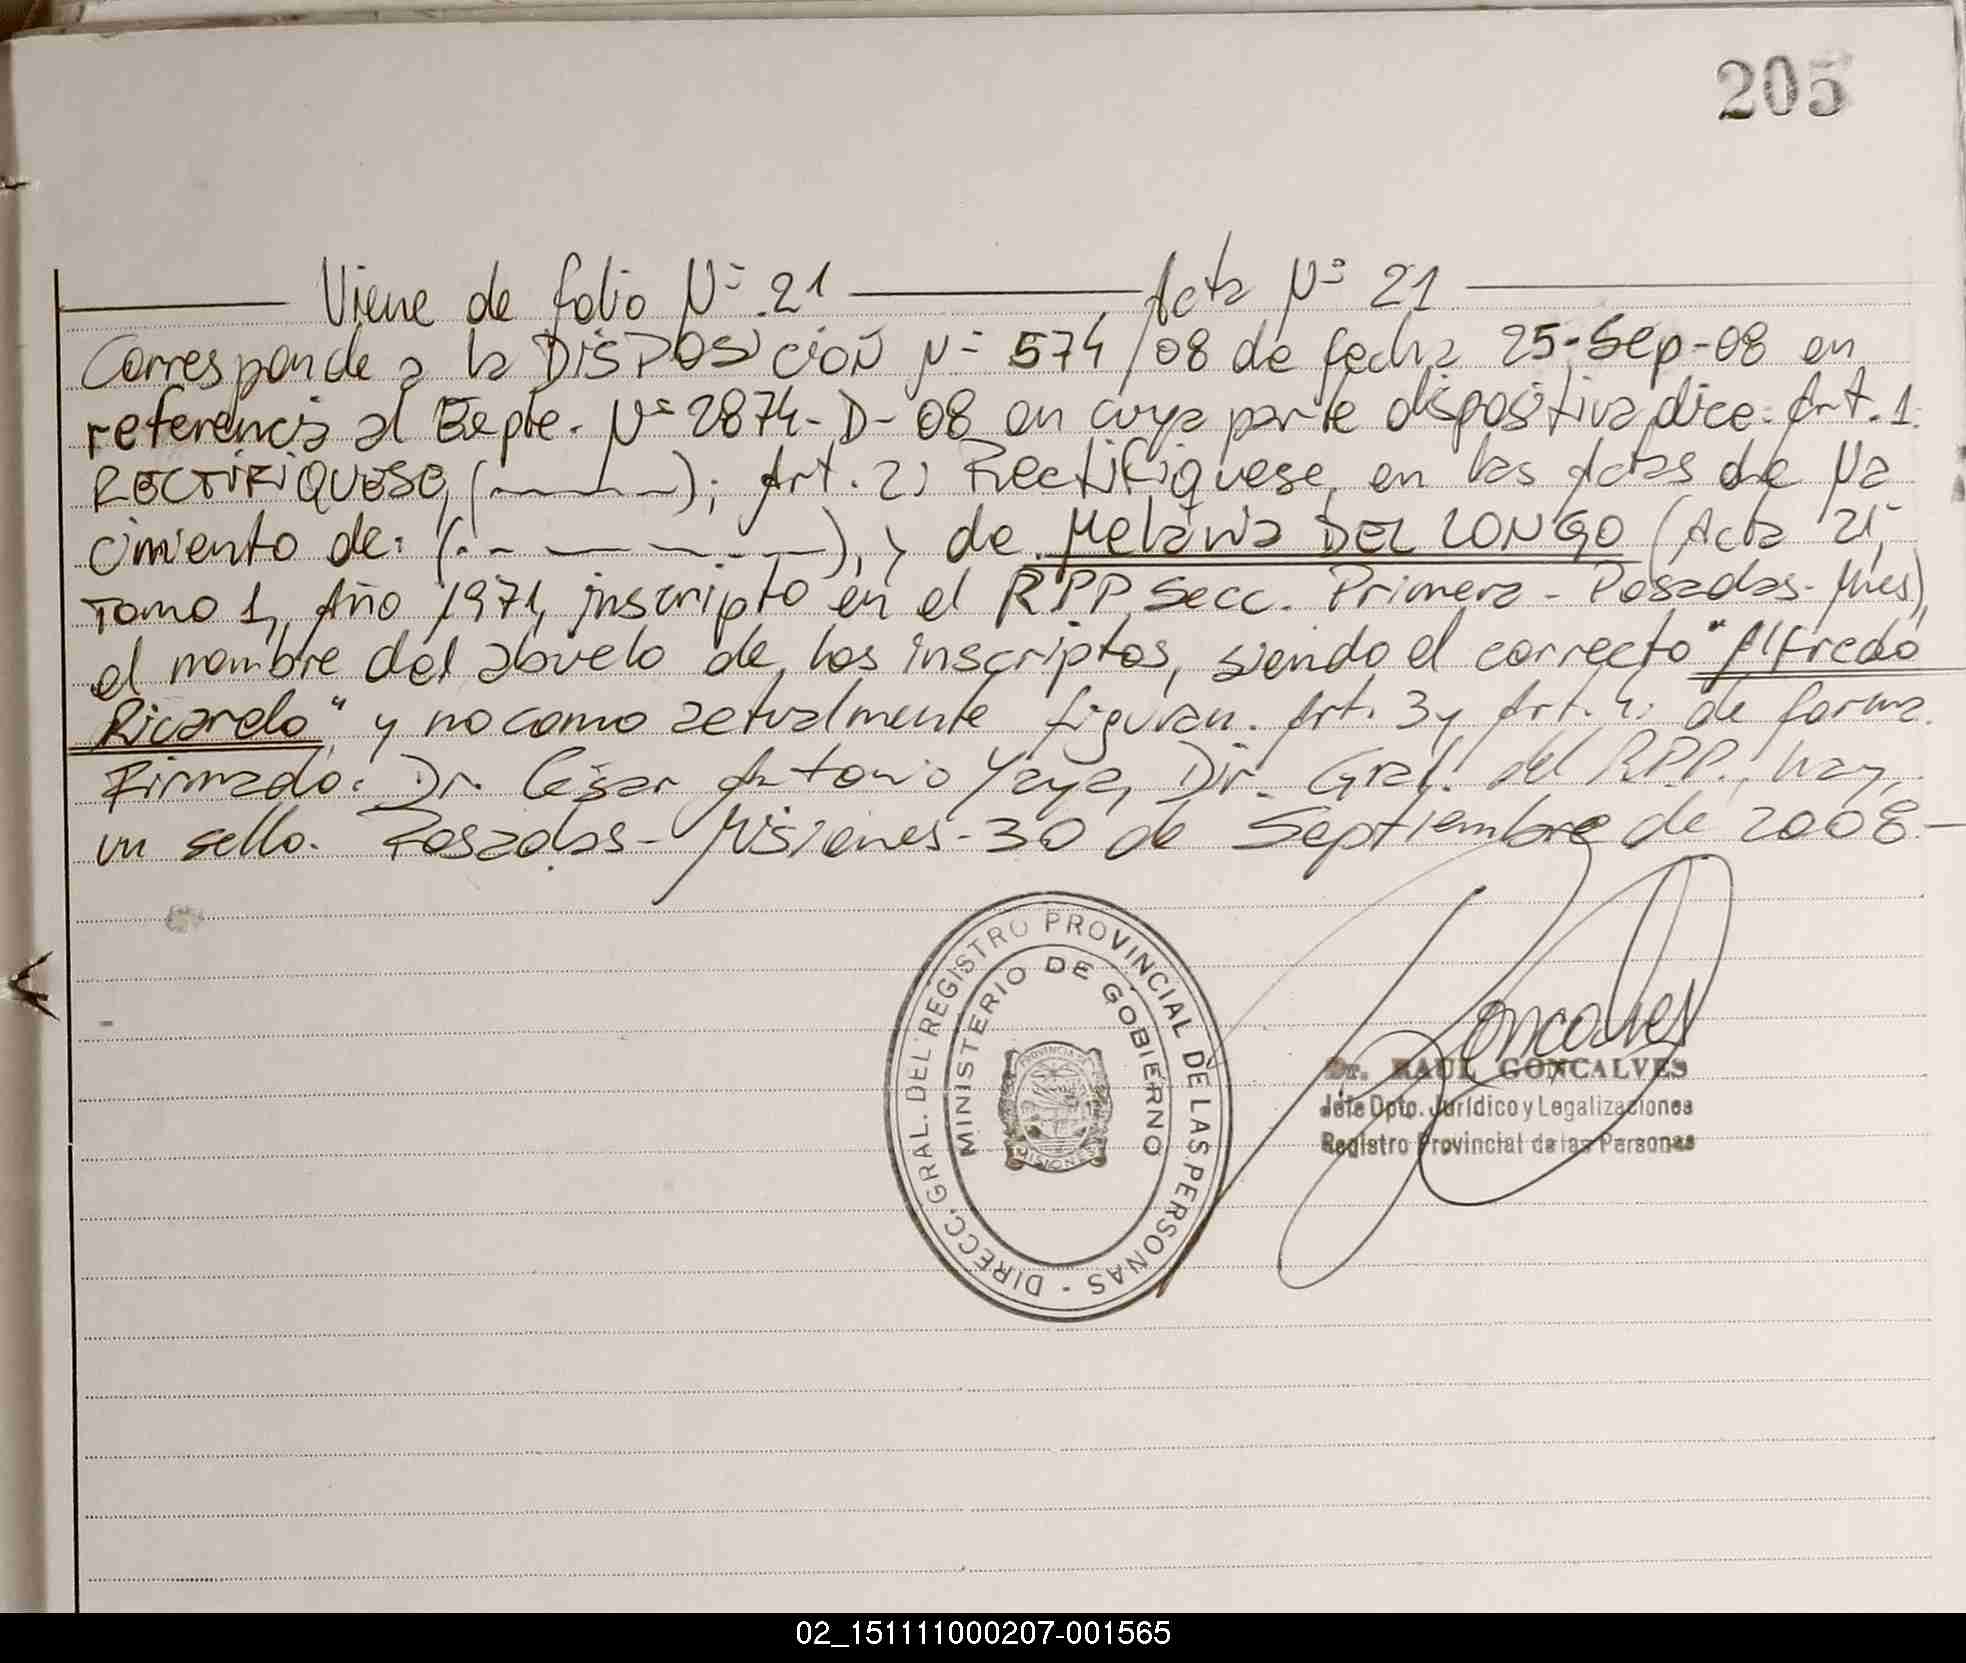 205
Viene de folio Nº 21 Acta Nº 21
Corresponde a la DISPOSICIÓN Nº 574/08 de fecha 25-Sep-08 en
referencia al Expte. Nº 2874-D-08 en cuya parte dispositiva dice: Art. 1:
RECTIFIQUESE, (------); Art. 2) Rectifiquese, en las Actas de Na
cimiento de: (------), y de Melania DEL LONGO (Acta 21,
Tomo 1, Año 1971, inscripto en el RPP, Secc. Primera - Posadas - Mnes),
el nombre del abuelo de los inscriptos, siendo el correcto "Alfredo
Ricardo" y no como actualmente figuran. Art. 3 y Art. 4: de forma.
Firmado: Dr. César Antonio Yaya, Dir. Gral. del RPP., hay
un sello. Posadas - Misiones - 30 de Septiembre de 2008.-
DIRECC. GRAL. DEL REGISTRO PROVINCIAL DE LAS PERSONAS -
MINISTERIO DE GOBIERNO
PROVINCIA DE
MISIONES
Goncalves
Dr. RAUL GONCALVES
Jefe Dpto. Jurídico y Legalizaciones
Registro Provincial de las Personas
02_151111000207-001565